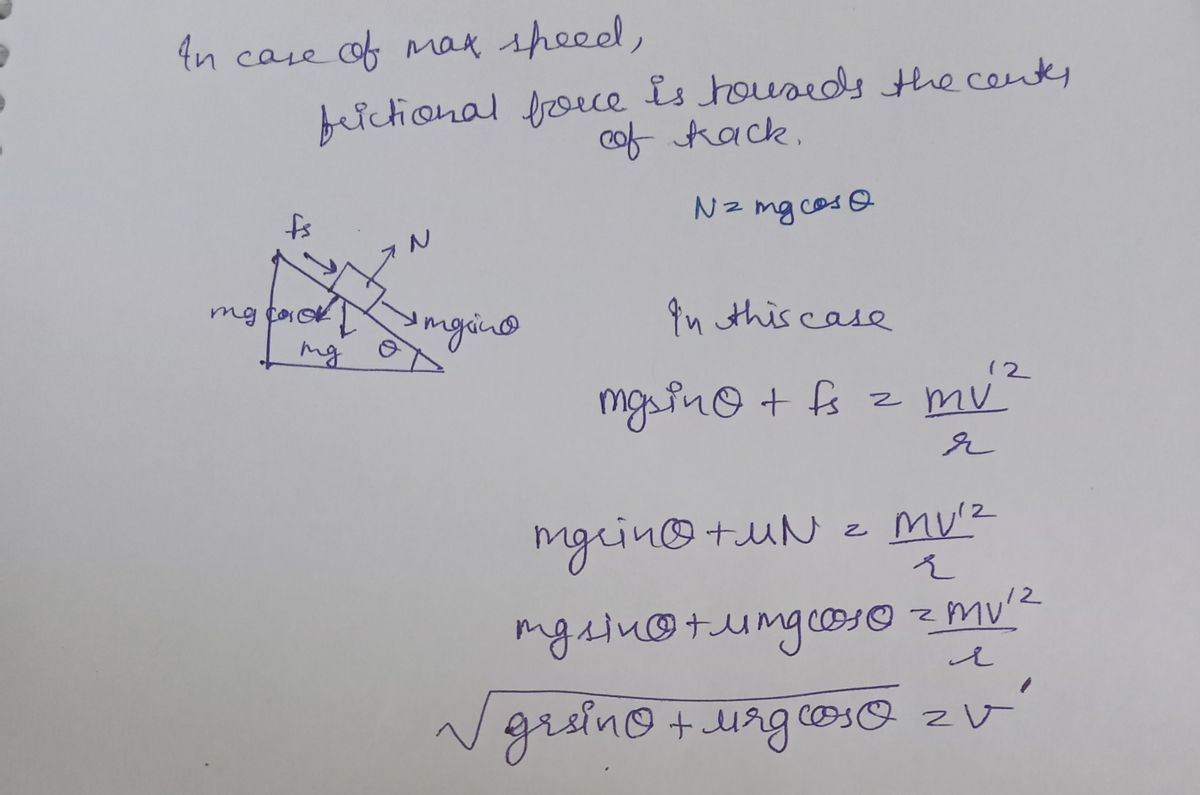 In case of max speed,
frictional force is towards the center
of track.
N = mg cosθ
fs
N
mg cosθ
mg
θ
mgsinθ
In this case
mgsinθ + fs = mv'²/r
mgsinθ + μN = mv'²/r
mgsinθ + μmgcosθ = mv'²/r
√grsinθ + μrgcosθ = v'